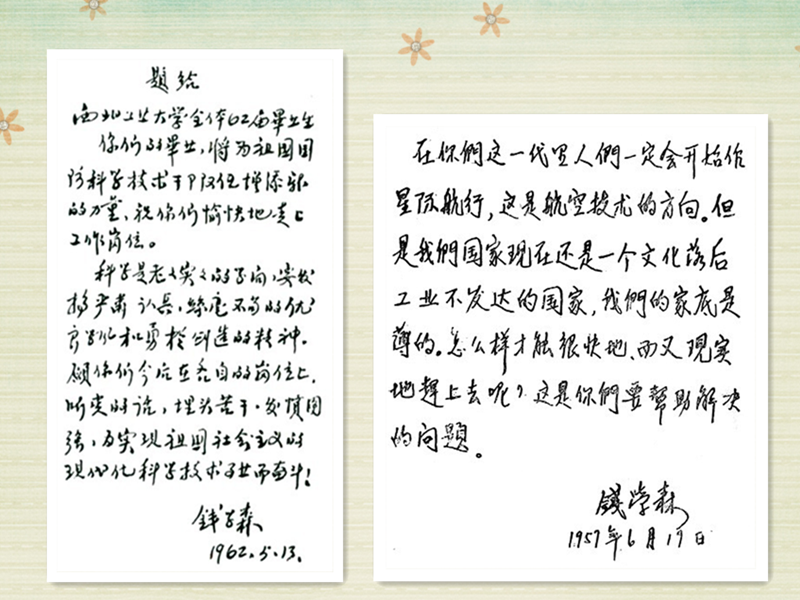 题给
西北工业大学全体62届畢业生
你们的畢业,将为祖国国
防科学技术干部队伍增添新
的力量,祝你们愉快地走上
工作岗位。
科学是老〻实〻的学问,要发
扬严肃认真,丝毫不苟的优
良和勇於创造的精神。
愿你们今后在各自的岗位上,
听党的话,埋头苦干,发愤图
强,为实现祖国社会主义的
现代化科学技术事业而奋斗!
钱学森
1962.5.13.
在你們这一代里人們一定会开始作
星际航行,这是航空技术的方向。但
是我們国家现在还是一个文化落后
工业不发达的国家,我們的家底是
薄的。怎么样才能很快地、而又现实
地趕上去呢?这是你們要幫助解决
的问題。
錢学森
1957年6月19日